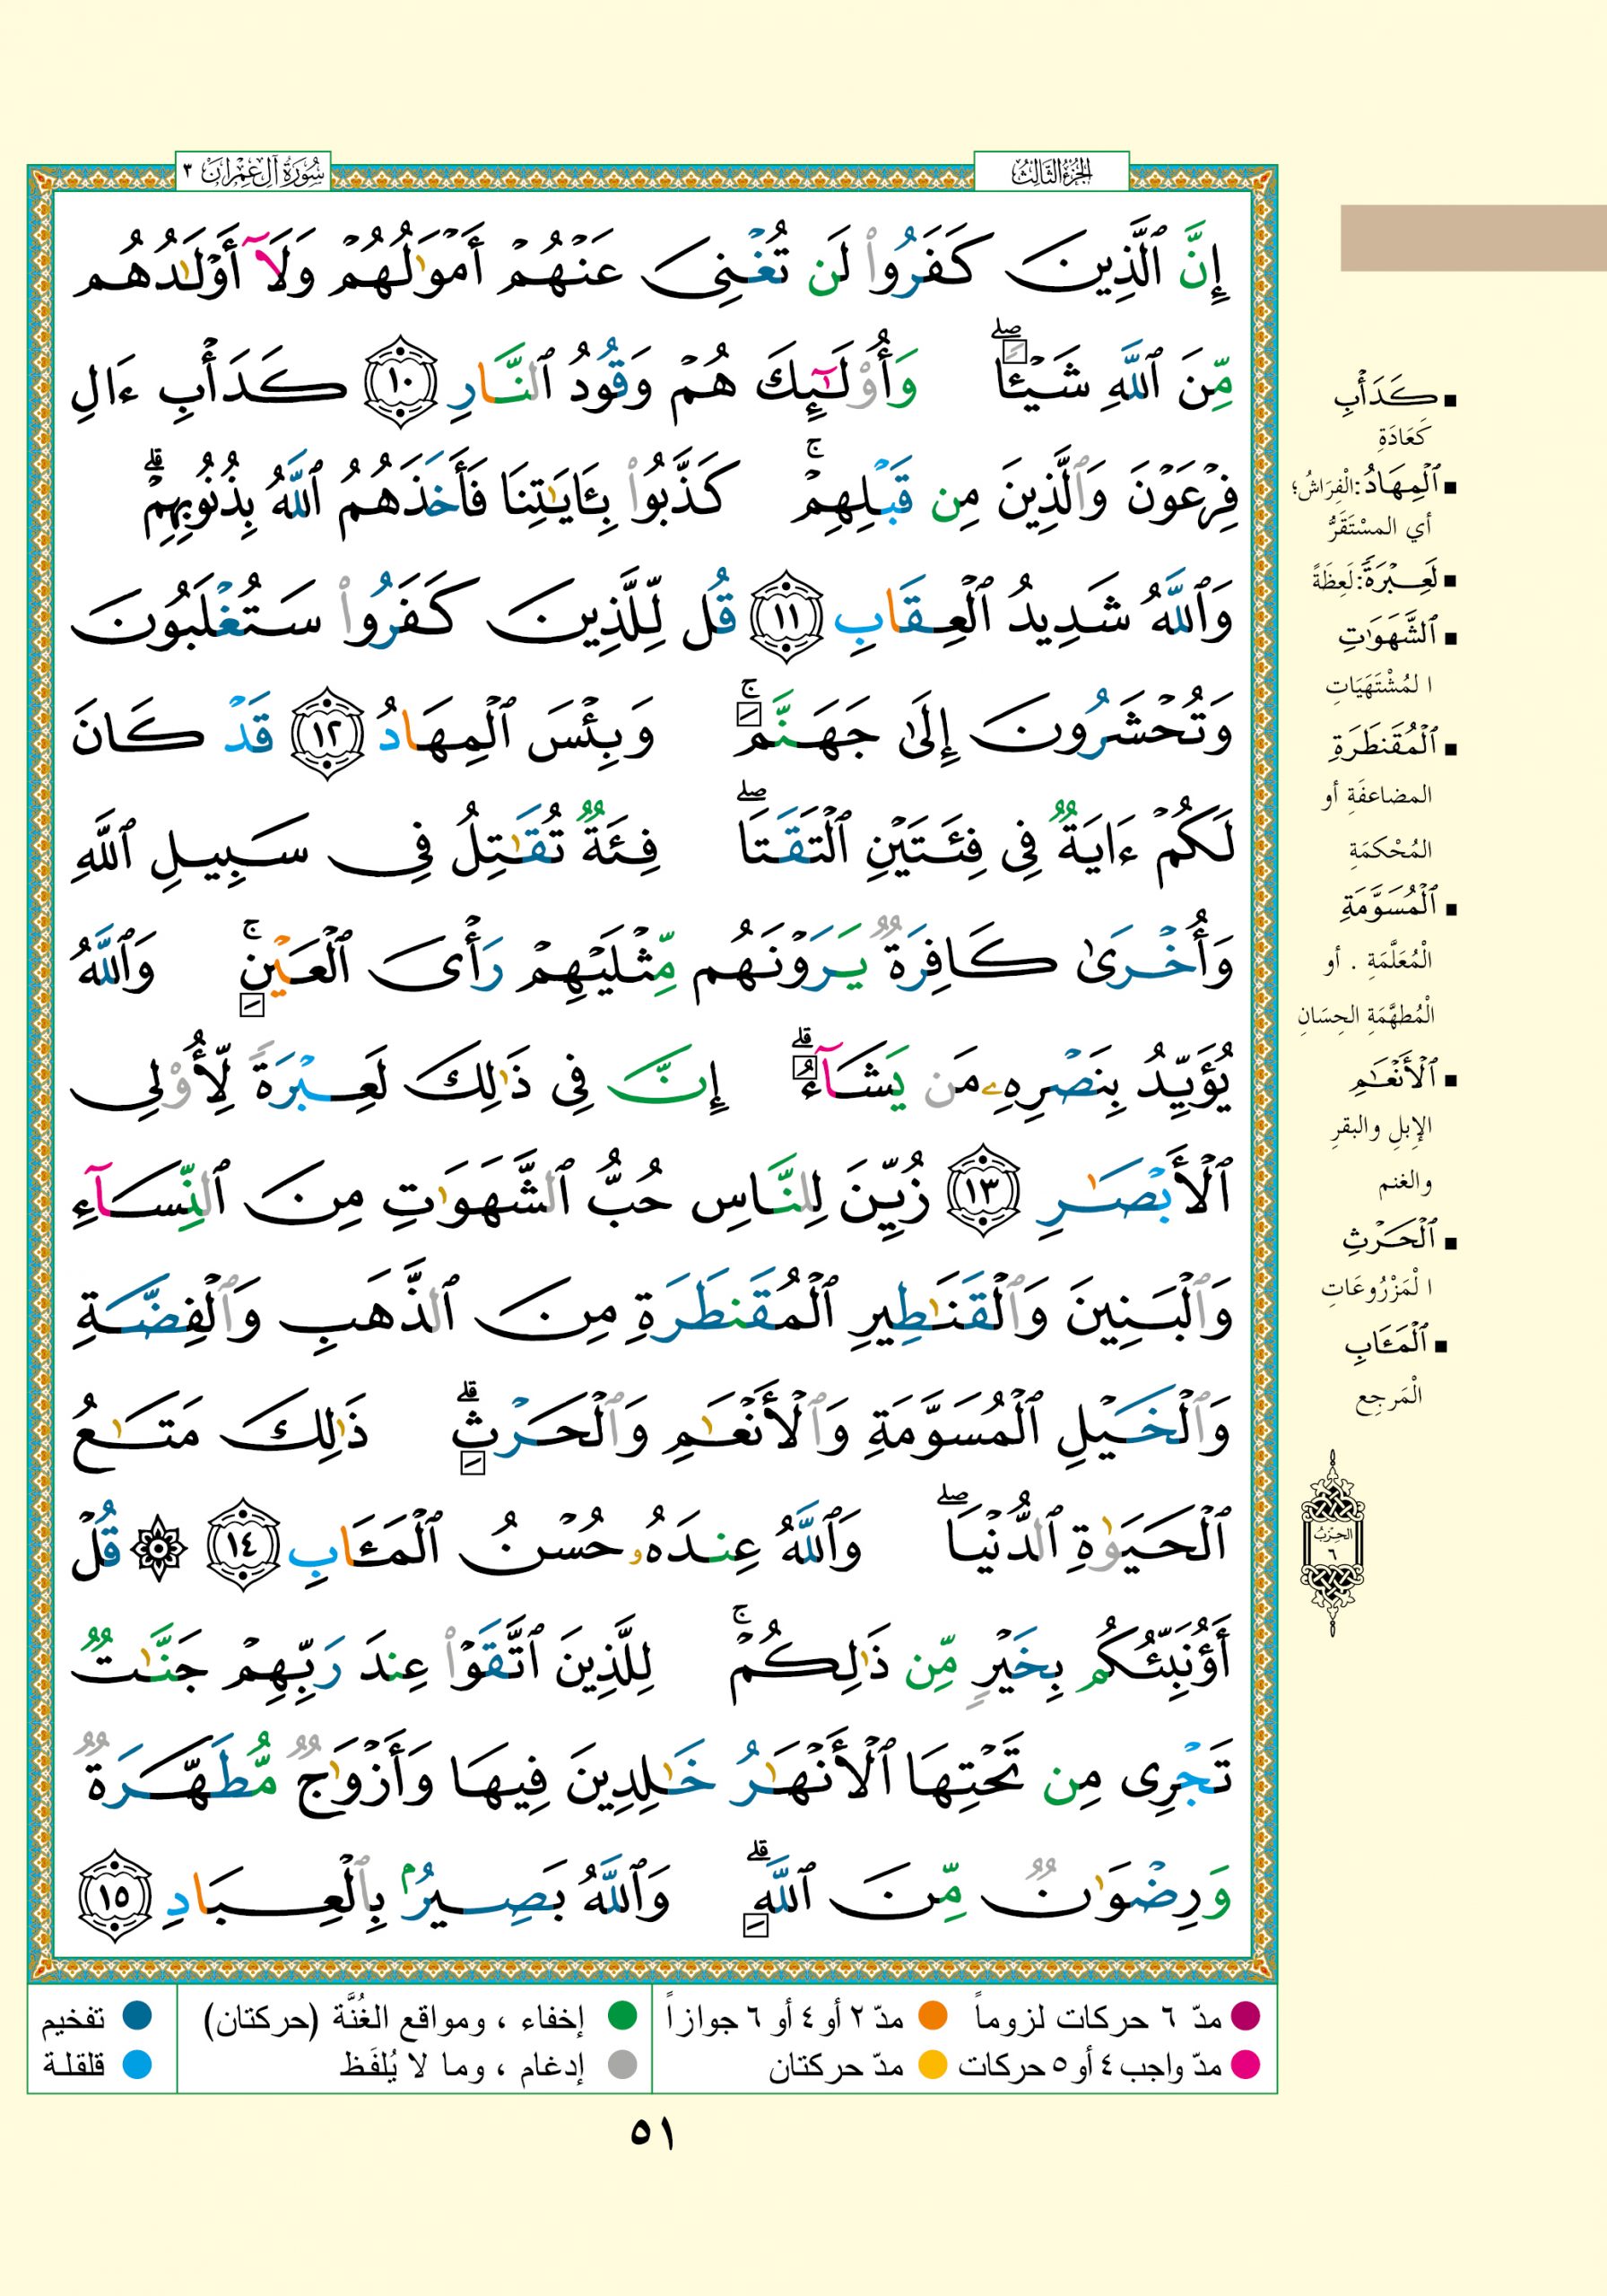 سُورَةُ آلِ عِمْرَانَ ٣
الجُزْءُ الثَّالِثُ
إِنَّ ٱلَّذِينَ كَفَرُوا۟ لَن تُغْنِىَ عَنْهُمْ أَمْوَٰلُهُمْ وَلَآ أَوْلَـٰدُهُم
مِّنَ ٱللَّهِ شَيْـًٔا ۖ وَأُو۟لَـٰٓئِكَ هُمْ وَقُودُ ٱلنَّارِ ١٠ كَدَأْبِ ءَالِ
فِرْعَوْنَ وَٱلَّذِينَ مِن قَبْلِهِمْ ۚ كَذَّبُوا۟ بِـَٔايَـٰتِنَا فَأَخَذَهُمُ ٱللَّهُ بِذُنُوبِهِمْ ۗ
وَٱللَّهُ شَدِيدُ ٱلْعِقَابِ ١١ قُل لِّلَّذِينَ كَفَرُوا۟ سَتُغْلَبُونَ
وَتُحْشَرُونَ إِلَىٰ جَهَنَّمَ ۚ وَبِئْسَ ٱلْمِهَادُ ١٢ قَدْ كَانَ
لَكُمْ ءَايَةٌ فِى فِئَتَيْنِ ٱلْتَقَتَا ۖ فِئَةٌ تُقَـٰتِلُ فِى سَبِيلِ ٱللَّهِ
وَأُخْرَىٰ كَافِرَةٌ يَرَوْنَهُم مِّثْلَيْهِمْ رَأْىَ ٱلْعَيْنِ ۚ وَٱللَّهُ
يُؤَيِّدُ بِنَصْرِهِۦ مَن يَشَآءُ ۗ إِنَّ فِى ذَٰلِكَ لَعِبْرَةً لِّأُو۟لِى
ٱلْأَبْصَـٰرِ ١٣ زُيِّنَ لِلنَّاسِ حُبُّ ٱلشَّهَوَٰتِ مِنَ ٱلنِّسَآءِ
وَٱلْبَنِينَ وَٱلْقَنَـٰطِيرِ ٱلْمُقَنطَرَةِ مِنَ ٱلذَّهَبِ وَٱلْفِضَّةِ
وَٱلْخَيْلِ ٱلْمُسَوَّمَةِ وَٱلْأَنْعَـٰمِ وَٱلْحَرْثِ ۗ ذَٰلِكَ مَتَـٰعُ
ٱلْحَيَوٰةِ ٱلدُّنْيَا ۖ وَٱللَّهُ عِندَهُۥ حُسْنُ ٱلْمَـَٔابِ ١٤ ۞ قُلْ
أَؤُنَبِّئُكُم بِخَيْرٍ مِّن ذَٰلِكُمْ ۚ لِلَّذِينَ ٱتَّقَوْا۟ عِندَ رَبِّهِمْ جَنَّـٰتٌ
تَجْرِى مِن تَحْتِهَا ٱلْأَنْهَـٰرُ خَـٰلِدِينَ فِيهَا وَأَزْوَٰجٌ مُّطَهَّرَةٌ
وَرِضْوَٰنٌ مِّنَ ٱللَّهِ ۗ وَٱللَّهُ بَصِيرٌۢ بِٱلْعِبَادِ ١٥
■ كَدَأْبِ
كَعَادَةِ
■ ٱلْمِهَادُ: الْفِرَاشُ؛
أي المسْتَقَرُّ
■ لَعِبْرَةً: لَعِظَةً
■ ٱلشَّهَوَٰتِ
المُشْتَهَيَاتِ
■ ٱلْمُقَنطَرَةِ
المضاعفَةِ أو
المُحْكمَةِ
■ ٱلْمُسَوَّمَةِ
الْمُعَلَّمَةِ . أو
الْمُطهَّمَةِ الحِسَانِ
■ ٱلْأَنْعَـٰمِ
الإبلِ والبقرِ
والغنم
■ ٱلْحَرْثِ
الْمَزْرُوعَاتِ
■ ٱلْمَـَٔابِ
الْمَرجِع
الحِزْبُ
٦
مدّ ٦ حركات لزوماً
مدّ ٢ أو ٤ أو ٦ جوازاً
إخفاء ، ومواقع الغُنَّة (حركتان)
تفخيم
مدّ واجب ٤ أو ٥ حركات
مدّ حركتان
إدغام ، وما لا يُلفَظ
قلقلة
٥١